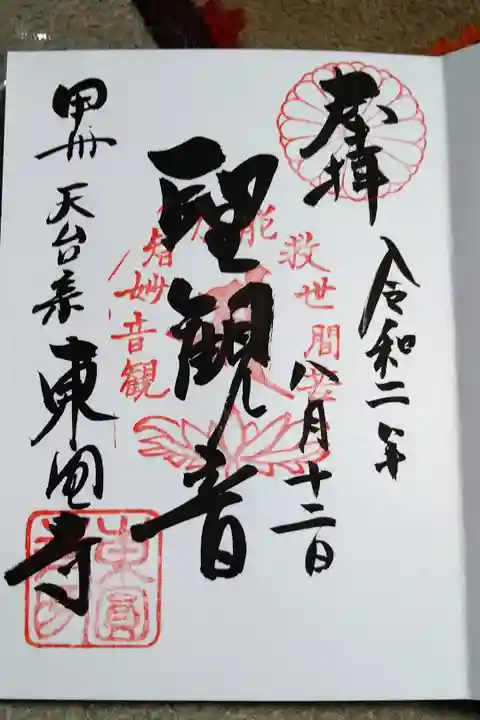 奉拝
令和二年
八月十二日
聖観音
甲州 天台宗 東圓寺
能救世間苦
智妙音観
東圓